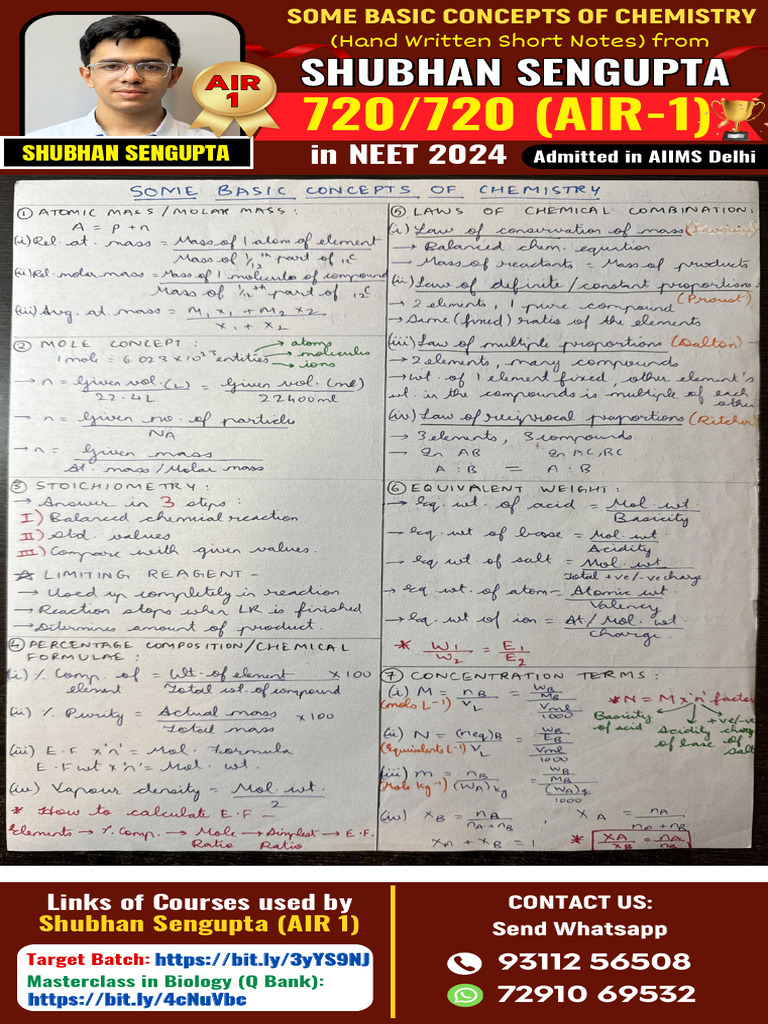 SOME BASIC CONCEPTS OF CHEMISTRY
(Hand Written Short Notes) from
SHUBHAN SENGUPTA
AIR
1
720/720 (AIR-1)
SHUBHAN SENGUPTA
in NEET 2024
Admitted in AIIMS Delhi
SOME BASIC CONCEPTS OF CHEMISTRY
① ATOMIC MASS/MOLAR MASS:
A = p + n
(i) Rel. at. mass = Mass of 1 atom of element
Mass of 1/12th part of 12C
(ii) Rel. molar mass = Mass of 1 molecule of compound
Mass of 1/12th part of 12C
(iii) Avg. at. mass = M1 X1 + M2 X2
X1 + X2
② MOLE CONCEPT:
1 mole = 6.023 × 10^23 entities
→ atoms
→ molecules
→ ions
→ n = Given vol. (L) = Given vol. (ml)
22.4L 22400ml
→ n = Given no. of particles
NA
→ n = Given mass
At. mass/Molar mass
③ STOICHIOMETRY:
→ Answer in 3 steps:
I) Balanced chemical reaction
II) Std. values
III) Compare with given values.
☆ LIMITING REAGENT -
→ Used up completely in reaction
→ Reaction stops when LR is finished
→ Determines amount of product.
④ PERCENTAGE COMPOSITION/CHEMICAL
FORMULAE:
(i) % Comp. of = Wt. of element × 100
element Total wt. of compound
(ii) % Purity = Actual mass × 100
Total mass
(iii) E.F x'n' = Mol. Formula
E.F wt x'n' = Mol. wt.
(iv) Vapour density = Mol. wt.
2
* How to calculate E.F -
Elements → % Comp. → Mole → Simplest → E.F.
Ratio Ratio
⑤ LAWS OF CHEMICAL COMBINATION:
(i) Law of conservation of mass
→ Balanced chem. equation
→ Mass of reactants = Mass of products
(ii) Law of definite/constant proportions-
(Proust)
→ 2 elements, 1 pure compound
→ Same (fixed) ratio of the elements
(iii) Law of multiple proportions (Dalton)
→ 2 elements, many compounds
→ Wt. of 1 element fixed, other element's
wt. in the compounds is multiple of each
other
(iv) Law of reciprocal proportions
→ 3 elements, 3 compounds
→ In AB In AC, BC
A : B = A : B
⑥ EQUIVALENT WEIGHT:
→ Eq. wt. of acid = Mol. wt.
Basicity
→ Eq. wt of base = Mol. wt.
Acidity
→ Eq. wt of salt = Mol. wt
Total +ve/-ve charge
→ Eq wt. of atom = Atomic wt.
Valency
→ Eq wt. of ion = At/Mol. wt.
Charge
* W1 = E1
W2 E2
⑦ CONCENTRATION TERMS:
(i) M = nB = WB/MB
(mols L-1) VL Vml/1000
* N = M x 'n' factor
Basicity of acid
Acidity of base
+ve/-ve charge of salt
(ii) N = (neq)B = WB/EB
(Equivalents L-1) VL Vml/1000
(iii) m = nB = WB/MB
(mols kg-1) (WA)kg (WA)g/1000
(iv) XB = nB , XA = nA
nA + nB nA + nB
XA + XB = 1
* XA = nA
XB nB
Links of Courses used by
Shubhan Sengupta (AIR 1)
Target Batch: https://bit.ly/3yYS9NJ
Masterclass in Biology (Q Bank):
https://bit.ly/4cNuVbc
CONTACT US:
Send Whatsapp
93112 56508
72910 69532